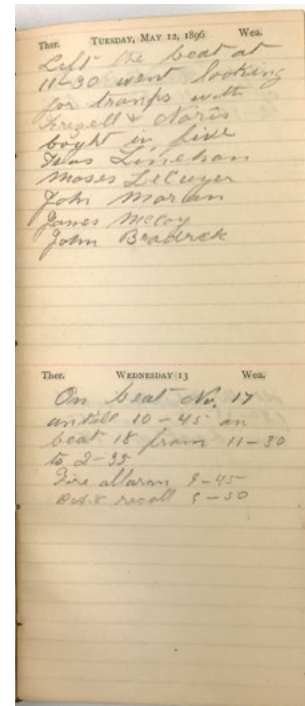 Ther. TUESDAY, MAY 12, 1896 Wea.
Left the beat at
11-30 went looking
for tramps with
& Noris
boght in five
Linehan
Moses LeCuyer
John Moran
James McCoy
John Bradrck
Ther. WEDNESDAY 13 Wea.
On beat No. 17
untill 10-45 on
beat 18 from 11-30
to 2-35
Fire allarm 9-45
recall 9-50